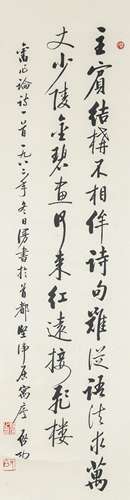 主賓結構不相侔詩句難從語法求萬
丈少陵金碧畫來紅遠接飛樓
舊作論詩一首一九八三年冬日漫書於首都堅淨居寓 啟功